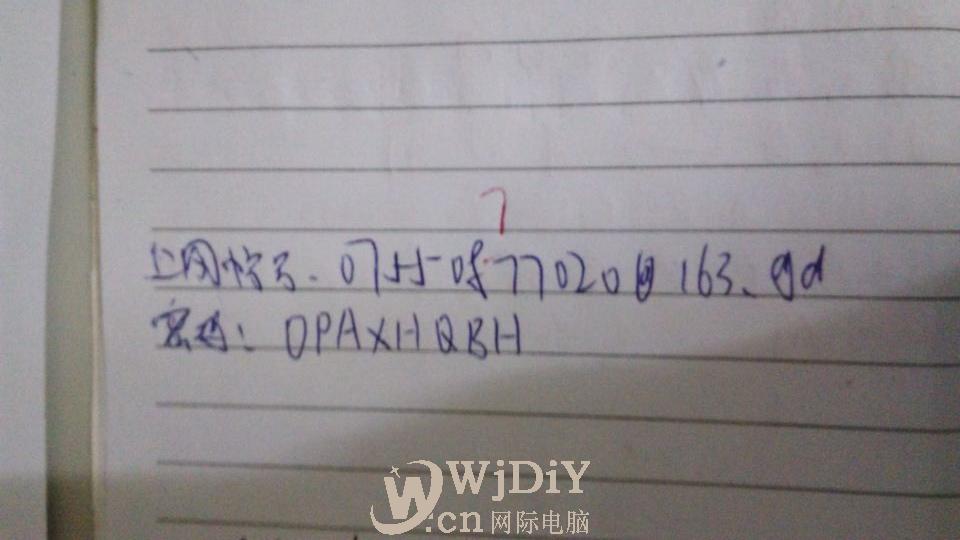 7
上网帐号、075508777020@163.gd
密码：OPAXHQBH
WjDiY
.cn网际电脑